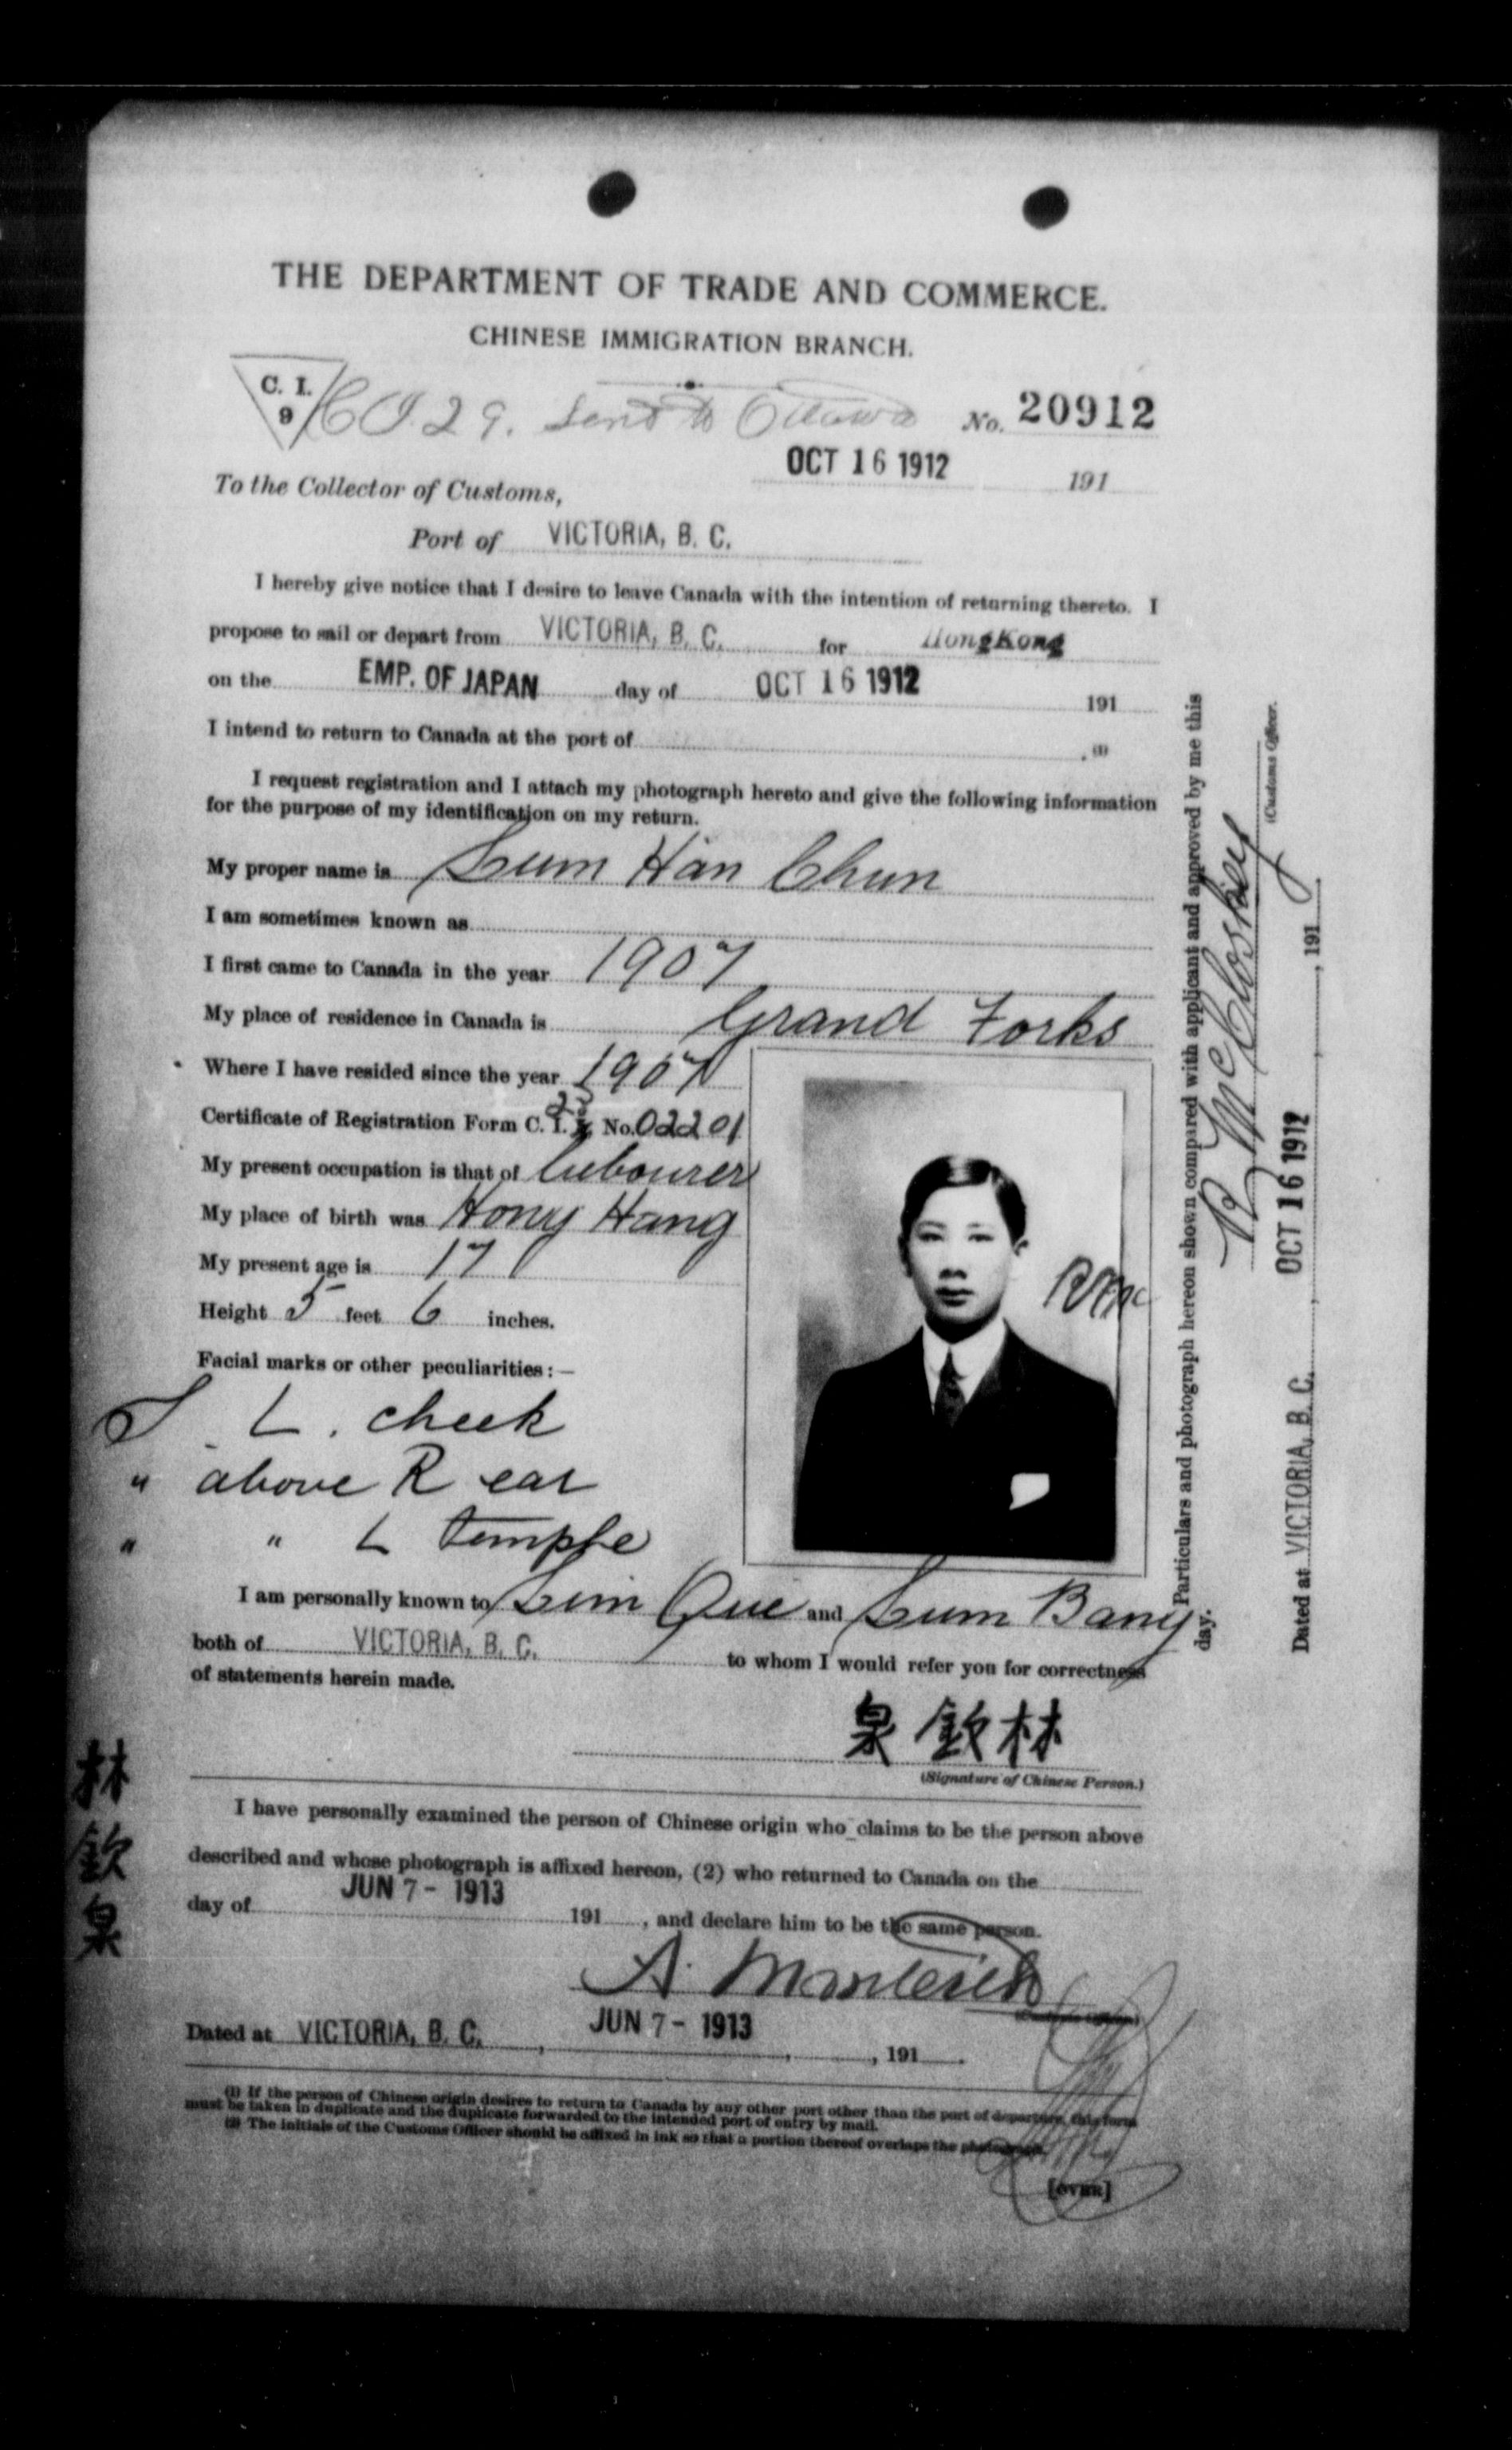 THE DEPARTMENT OF TRADE AND COMMERCE.
CHINESE IMMIGRATION BRANCH.
C. I.
9
C.I. 29. Send to Ottawa No. 20912
OCT 16 1912 191
To the Collector of Customs,
Port of VICTORIA, B. C.
I hereby give notice that I desire to leave Canada with the intention of returning thereto. I
propose to sail or depart from VICTORIA, B. C. for HongKong
on the EMP. OF JAPAN day of OCT 16 1912 191
I intend to return to Canada at the port of . (1)
I request registration and I attach my photograph hereto and give the following information
for the purpose of my identification on my return.
My proper name is Lum Han Chun
I am sometimes known as
I first came to Canada in the year 1907
My place of residence in Canada is Grand Forks
Where I have resided since the year 1907
Certificate of Registration Form C. I. No. 02201
My present occupation is that of Labourer
My place of birth was Hong Hang
My present age is 17
Height 5 feet 6 inches.
Facial marks or other peculiarities:—
L. cheek
" above R ear
" " L temple
RMc
I am personally known to Lim Que and Lum Bang
both of VICTORIA, B. C. to whom I would refer you for correctness
of statements herein made.
泉欽林
(Signature of Chinese Person.)
林欽泉
I have personally examined the person of Chinese origin who claims to be the person above
described and whose photograph is affixed hereon, (2) who returned to Canada on the
day of JUN 7 - 1913 191 , and declare him to be the same person.
Dated at VICTORIA, B. C. , JUN 7 - 1913 , 191 .
(1) If the person of Chinese origin desires to return to Canada by any other port other than the port of departure, this form
must be taken in duplicate and the duplicate forwarded to the intended port of entry by mail.
(2) The initials of the Customs Officer should be affixed in ink so that a portion thereof overlaps the photograph.
[OVER]
Particulars and photograph hereon shown compared with applicant and approved by me this
day.
R McCloskey
(Customs Officer.
Dated at VICTORIA, B. C. , OCT 16 1912 , 191